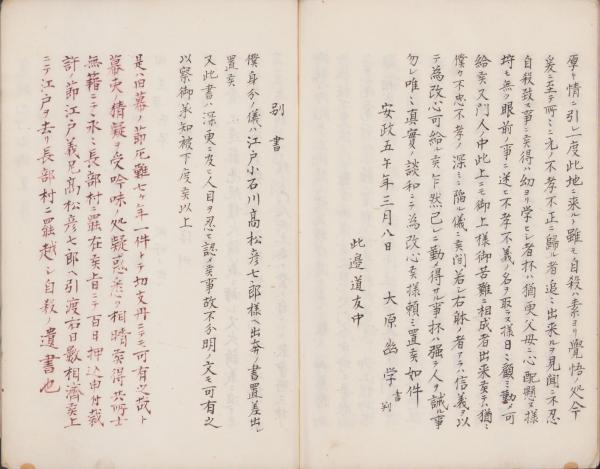 厚キ情ニ引レ一度此地ニ来ルト雖モ自殺ハ素ヨリ覚悟ノ処今
爰ニ至テ所ミニ元ノ不孝不正ニ帰ル者追ミ出来ルヲ見聞ニ不忍
自殺致ス事ニ候得ハ幼ヨリ学ヒシ者抔ハ猶更父母ニ心配懸ヌ様
埒モ無ク眼前ノ事ニ迷ヒ不孝不義ノ名ヲ取ラヌ様日ミ顧ミ勤メ可
給候又門人中此上ニモ御上様御苦難ニ相成者出来候テハ猶ミ
僕カ不忠不孝ノ深ミニ陥ル儀ニ候間若シ右躰ノ者アラハ信義ヲ以
テ為改心可給候乍然已レニ勤メ得サル事抔ハ強テ人ヲ誡ル事
勿レ唯ミ真実ノ談和ニテ為改心候様頼ミ置候如件
安政五午年三月八日 大原幽学 書判
此邊道友中
別書
僕身分ノ儀ハ江戸小石川髙松彦七郎様ヘ出奔ノ書置差出シ
置候
又此書ハ深更ニ及ヒ人目ヲ忍テ認メ候事故不分明ノ文モ可有之
以察御承知被下度候以上
是ハ旧幕ノ節厄難七ケ年一件トテ切支丹ニテモ可有之哉ト
幕吏ノ猜疑ヲ受吟味ノ処疑惑悉ク相晴候得共浪士
無籍ニテ永ミ長部村ニ罷在候旨ニテ百日押込申付裁
許ノ節江戸ノ義兄髙松彦七郎ヘ引渡右日數相濟候上
ニテ江戸ヲ去リ長部村ニ罷越シ自殺ノ遺書也